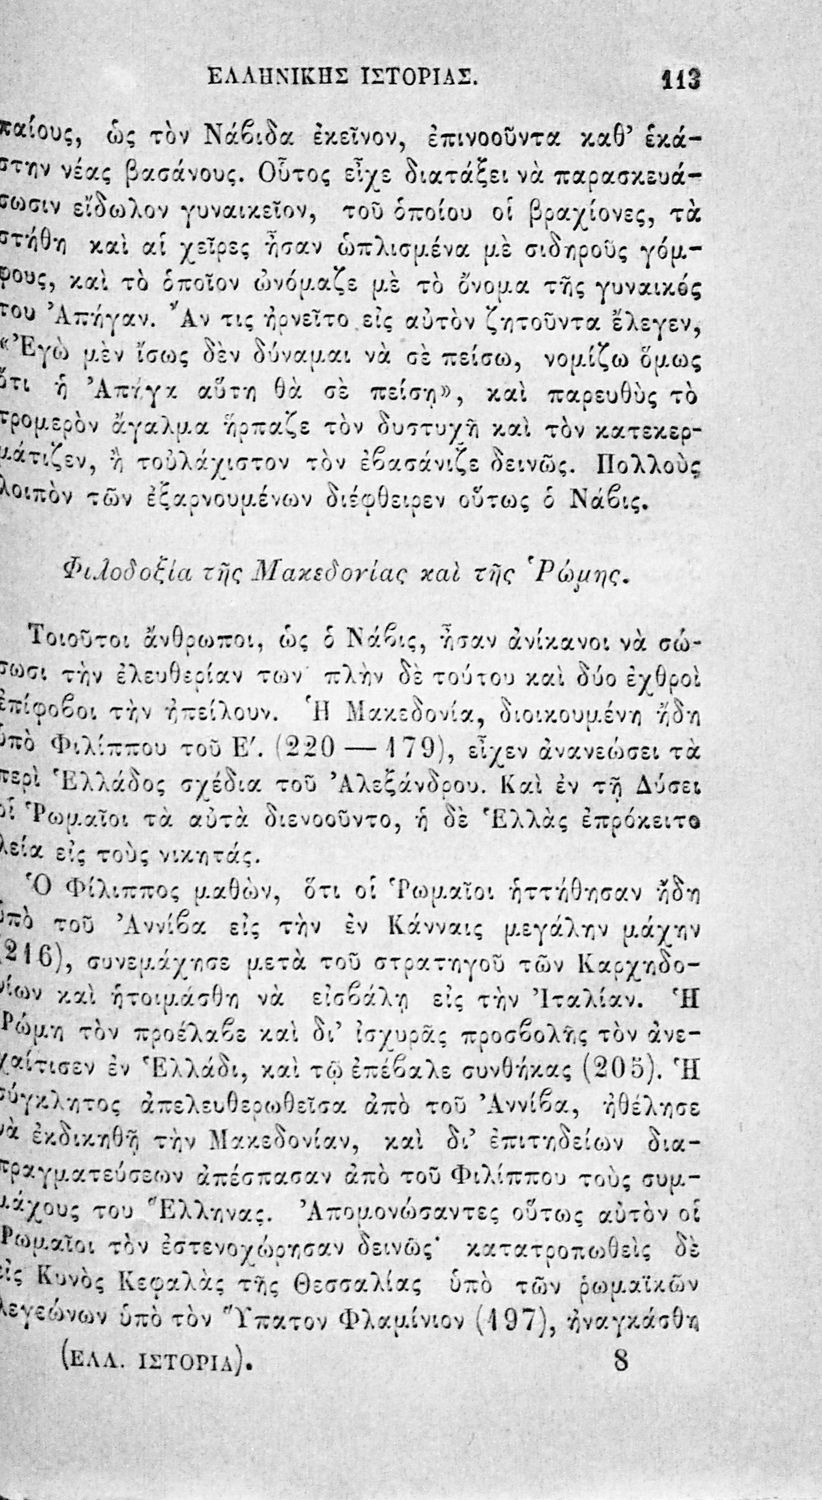 ΕΛΛΗΝΙΚΗΣ ΙΣΤΟΡΙΑΣ. 113
παίους, ὡς τὸν Νάβιδα ἐκεῖνον, ἐπινοοῦντα καθ’ ἑκά-
στην νέας βασάνους. Οὗτος εἶχε διατάξει νὰ παρασκευά-
σωσιν εἴδωλον γυναικεῖον, τοῦ ὁποίου οἱ βραχίονες, τὰ
στήθη καὶ αἱ χεῖρες ἦσαν ὡπλισμένα μὲ σιδηροῦς γόμ-
φους, καὶ τὸ ὁποῖον ὠνόμαζε μὲ τὸ ὄνομα τῆς γυναικός
του Ἀπήγαν. Ἄν τις ἠρνεῖτο εἰς αὐτὸν ζητοῦντα ἔλεγεν,
«Ἐγὼ μὲν ἴσως δὲν δύναμαι νὰ σὲ πείσω, νομίζω ὅμως
ὅτι ἡ Ἀπήγα αὕτη θὰ σὲ πείσῃ», καὶ παρευθὺς τὸ
τρομερὸν ἄγαλμα ἥρπαζε τὸν δυστυχῆ καὶ τὸν κατεκερ-
μάτιζεν, ἢ τοὐλάχιστον τὸν ἐβασάνιζε δεινῶς. Πολλοὺς
λοιπὸν τῶν ἐξαρνουμένων διέφθειρεν οὕτως ὁ Νάβις.
Φιλοδοξία τῆς Μακεδονίας καὶ τῆς Ῥώμης.
Τοιοῦτοι ἄνθρωποι, ὡς ὁ Νάβις, ἦσαν ἀνίκανοι νὰ σώ-
σωσι τὴν ἐλευθερίαν των· πλὴν δὲ τούτου καὶ δύο ἐχθροὶ
ἐπίφοβοι τὴν ἠπείλουν. Ἡ Μακεδονία, διοικουμένη ἤδη
ὑπὸ Φιλίππου τοῦ Ε′. (220 — 179), εἶχεν ἀνανεώσει τὰ
περὶ Ἑλλάδος σχέδια τοῦ Ἀλεξάνδρου. Καὶ ἐν τῇ Δύσει
οἱ Ῥωμαῖοι τὰ αὐτὰ διενοοῦντο, ἡ δὲ Ἑλλὰς ἐπρόκειτο
λεία εἰς τοὺς νικητάς.
Ὁ Φίλιππος μαθὼν, ὅτι οἱ Ῥωμαῖοι ἡττήθησαν ἤδη
ὑπὸ τοῦ Ἀννίβα εἰς τὴν ἐν Κάνναις μεγάλην μάχην
(216), συνεμάχησε μετὰ τοῦ στρατηγοῦ τῶν Καρχηδο-
νίων καὶ ἡτοιμάσθη νὰ εἰσβάλῃ εἰς τὴν Ἰταλίαν. Ἡ
Ῥώμη τὸν προέλαβε καὶ δι’ ἰσχυρᾶς προσβολῆς τὸν ἀνε-
χαίτισεν ἐν Ἑλλάδι, καὶ τῷ ἐπέβαλε συνθήκας (205). Ἡ
σύγκλητος ἀπελευθερωθεῖσα ἀπὸ τοῦ Ἀννίβα, ἠθέλησε
νὰ ἐκδικηθῇ τὴν Μακεδονίαν, καὶ δι’ ἐπιτηδείων δια-
πραγματεύσεων ἀπέσπασαν ἀπὸ τοῦ Φιλίππου τοὺς συμ-
μάχους του Ἕλληνας. Ἀπομονώσαντες οὕτως αὐτὸν οἱ
Ῥωμαῖοι τὸν ἐστενοχώρησαν δεινῶς· κατατροπωθεὶς δὲ
εἰς Κυνὸς Κεφαλὰς τῆς Θεσσαλίας ὑπὸ τῶν ῥωμαϊκῶν
λεγεώνων ὑπὸ τὸν Ὕπατον Φλαμίνιον (197), ἠναγκάσθη
(ΕΛΛ. ΙΣΤΟΡΙΑ). 8